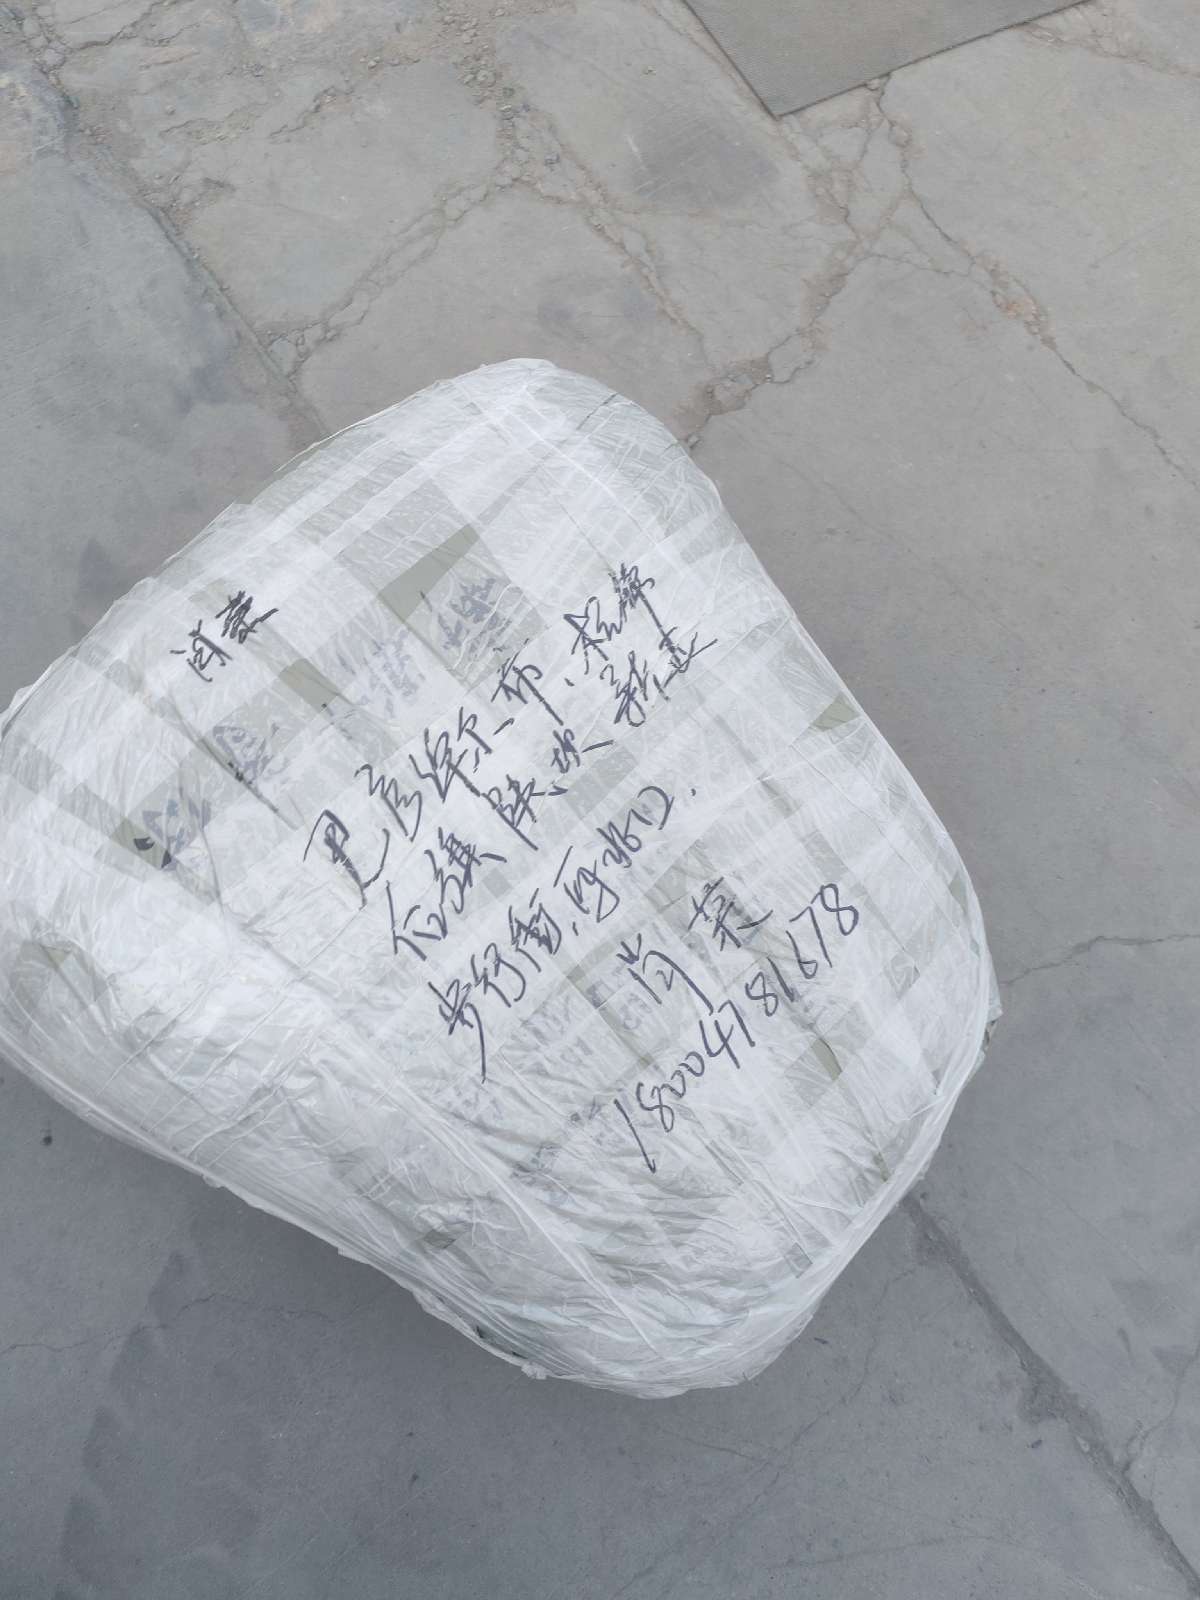 闫荣
巴彦淖尔市.杭锦
后旗陕坝新
步行街.西北口.
闫荣
18004781678